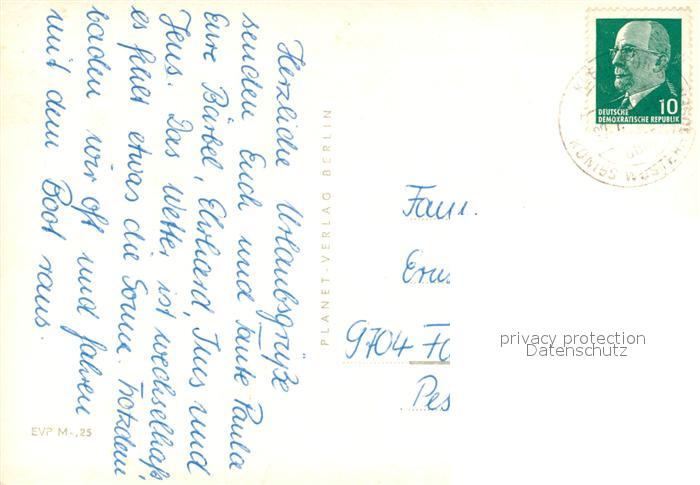 Herzliche Urlaubsgrüße
senden Euch und Tante Paula
Eure Bärbel, Ehrhard, Ines und
Jens. Das Wetter ist wechselhaft
es fehlt etwas die Sonne. Trotzdem
baden wir oft und fahren
mit dem Boot raus.
EVP M -,25
PLANET-VERLAG BERLIN
DEUTSCHE
DEMOKRATISCHE REPUBLIK
10
KÖNIGS WUSTERHAUSEN
Fam.
9704
privacy protection
Datenschutz